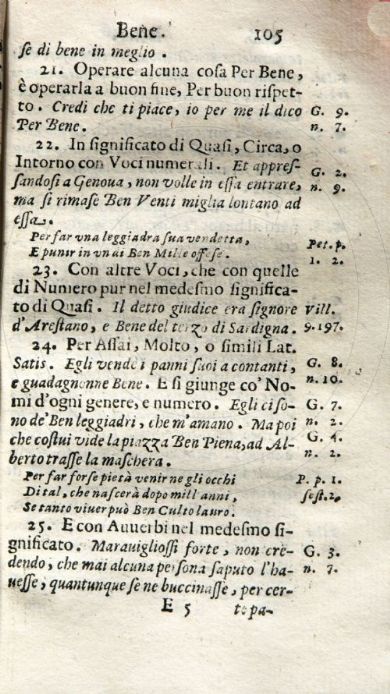 Bene. 105
se di bene in meglio.
21. Operare alcuna cosa Per Bene,
è operarla a buon fine, Per buon rispet-
to. Credi che ti piace, io per me il dico G. 9.
Per Bene. n. 7.
22. In significato di Quasi, Circa, o
Intorno con Voci numerali. Et appres- G. 2.
sandosi a Genoua, non volle in essa entrare, n. 9.
ma si rimase Ben Venti miglia lontano ad
essa.
Per far vna leggiadra sua vendetta, Pet. p.
E punir in vn dì Ben Mille offese. 1. 2.
23. Con altre Voci, che con quelle
di Numero pur nel medesmo significa-
to di Quasi. Il detto giudice era signore Vill.
d'Arestano, e Bene del terzo di Sardigna. 9. 197.
24. Per Assai, Molto, o simili Lat.
Satis. Egli vendè i panni suoi a contanti, G. 8.
e guadagnonne Bene. E si giunge co' No- n. 10.
mi d'ogni genere, e numero. Egli ci so- G. 7.
no de' Ben leggiadri, che m'amano. Ma poi n. 2.
che costui vide la piazza Ben Piena, ad Al- G. 4.
berto trasse la maschera. n. 2.
Per far forse pietà venir ne gli occhi P. p. 1.
Di tal, che nascerà dopo mill'anni, sest. 2.
Se tanto viuer può Ben Culto lauro.
25. E con Auuerbi nel medesmo si-
gnificato. Marauigliossi forte, non cre- G. 3.
dendo, che mai alcuna persona saputo l'ha- n. 7.
uesse, quantunque se ne buccinasse, per cer-
E 5 te pa-